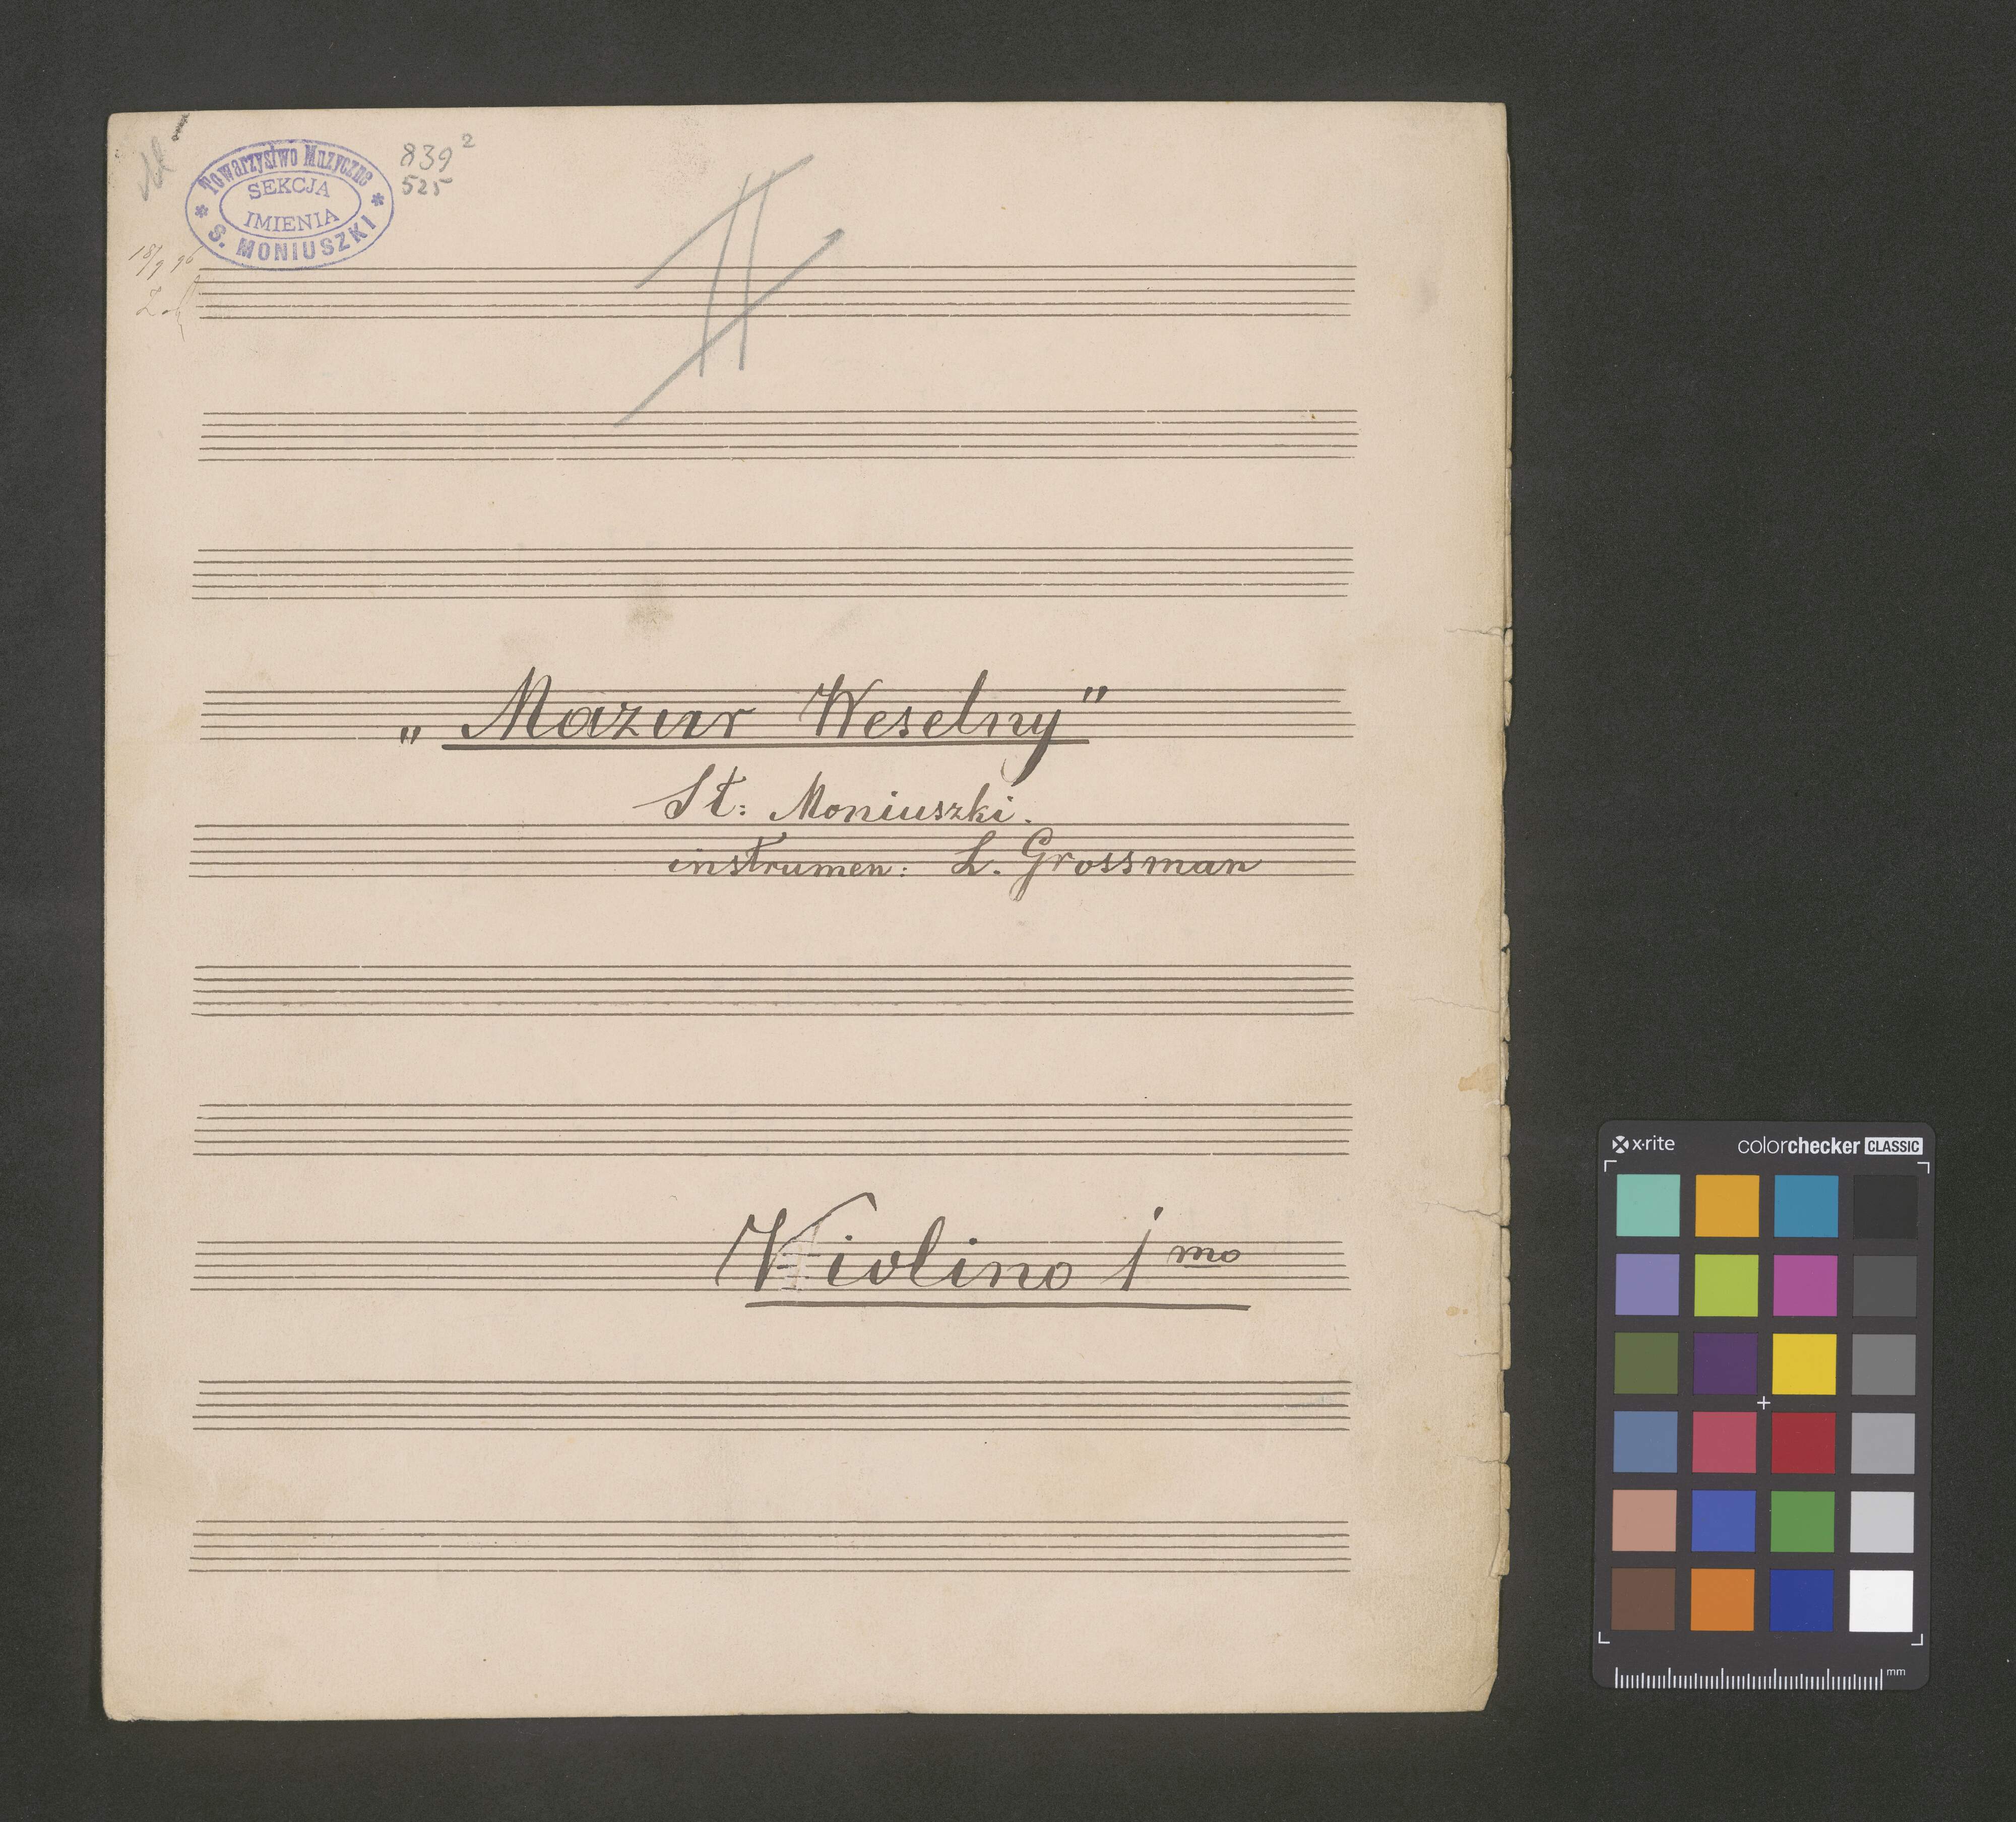 Towarzystwo Muzyczne
SEKCJA
IMIENIA
S. MONIUSZKI
839²
525
18/9 96
II
„Mazur Weselny"
St: Moniuszki.
instrumen: L. Grossman
Violino 1mo
x·rite
colorchecker CLASSIC
mm